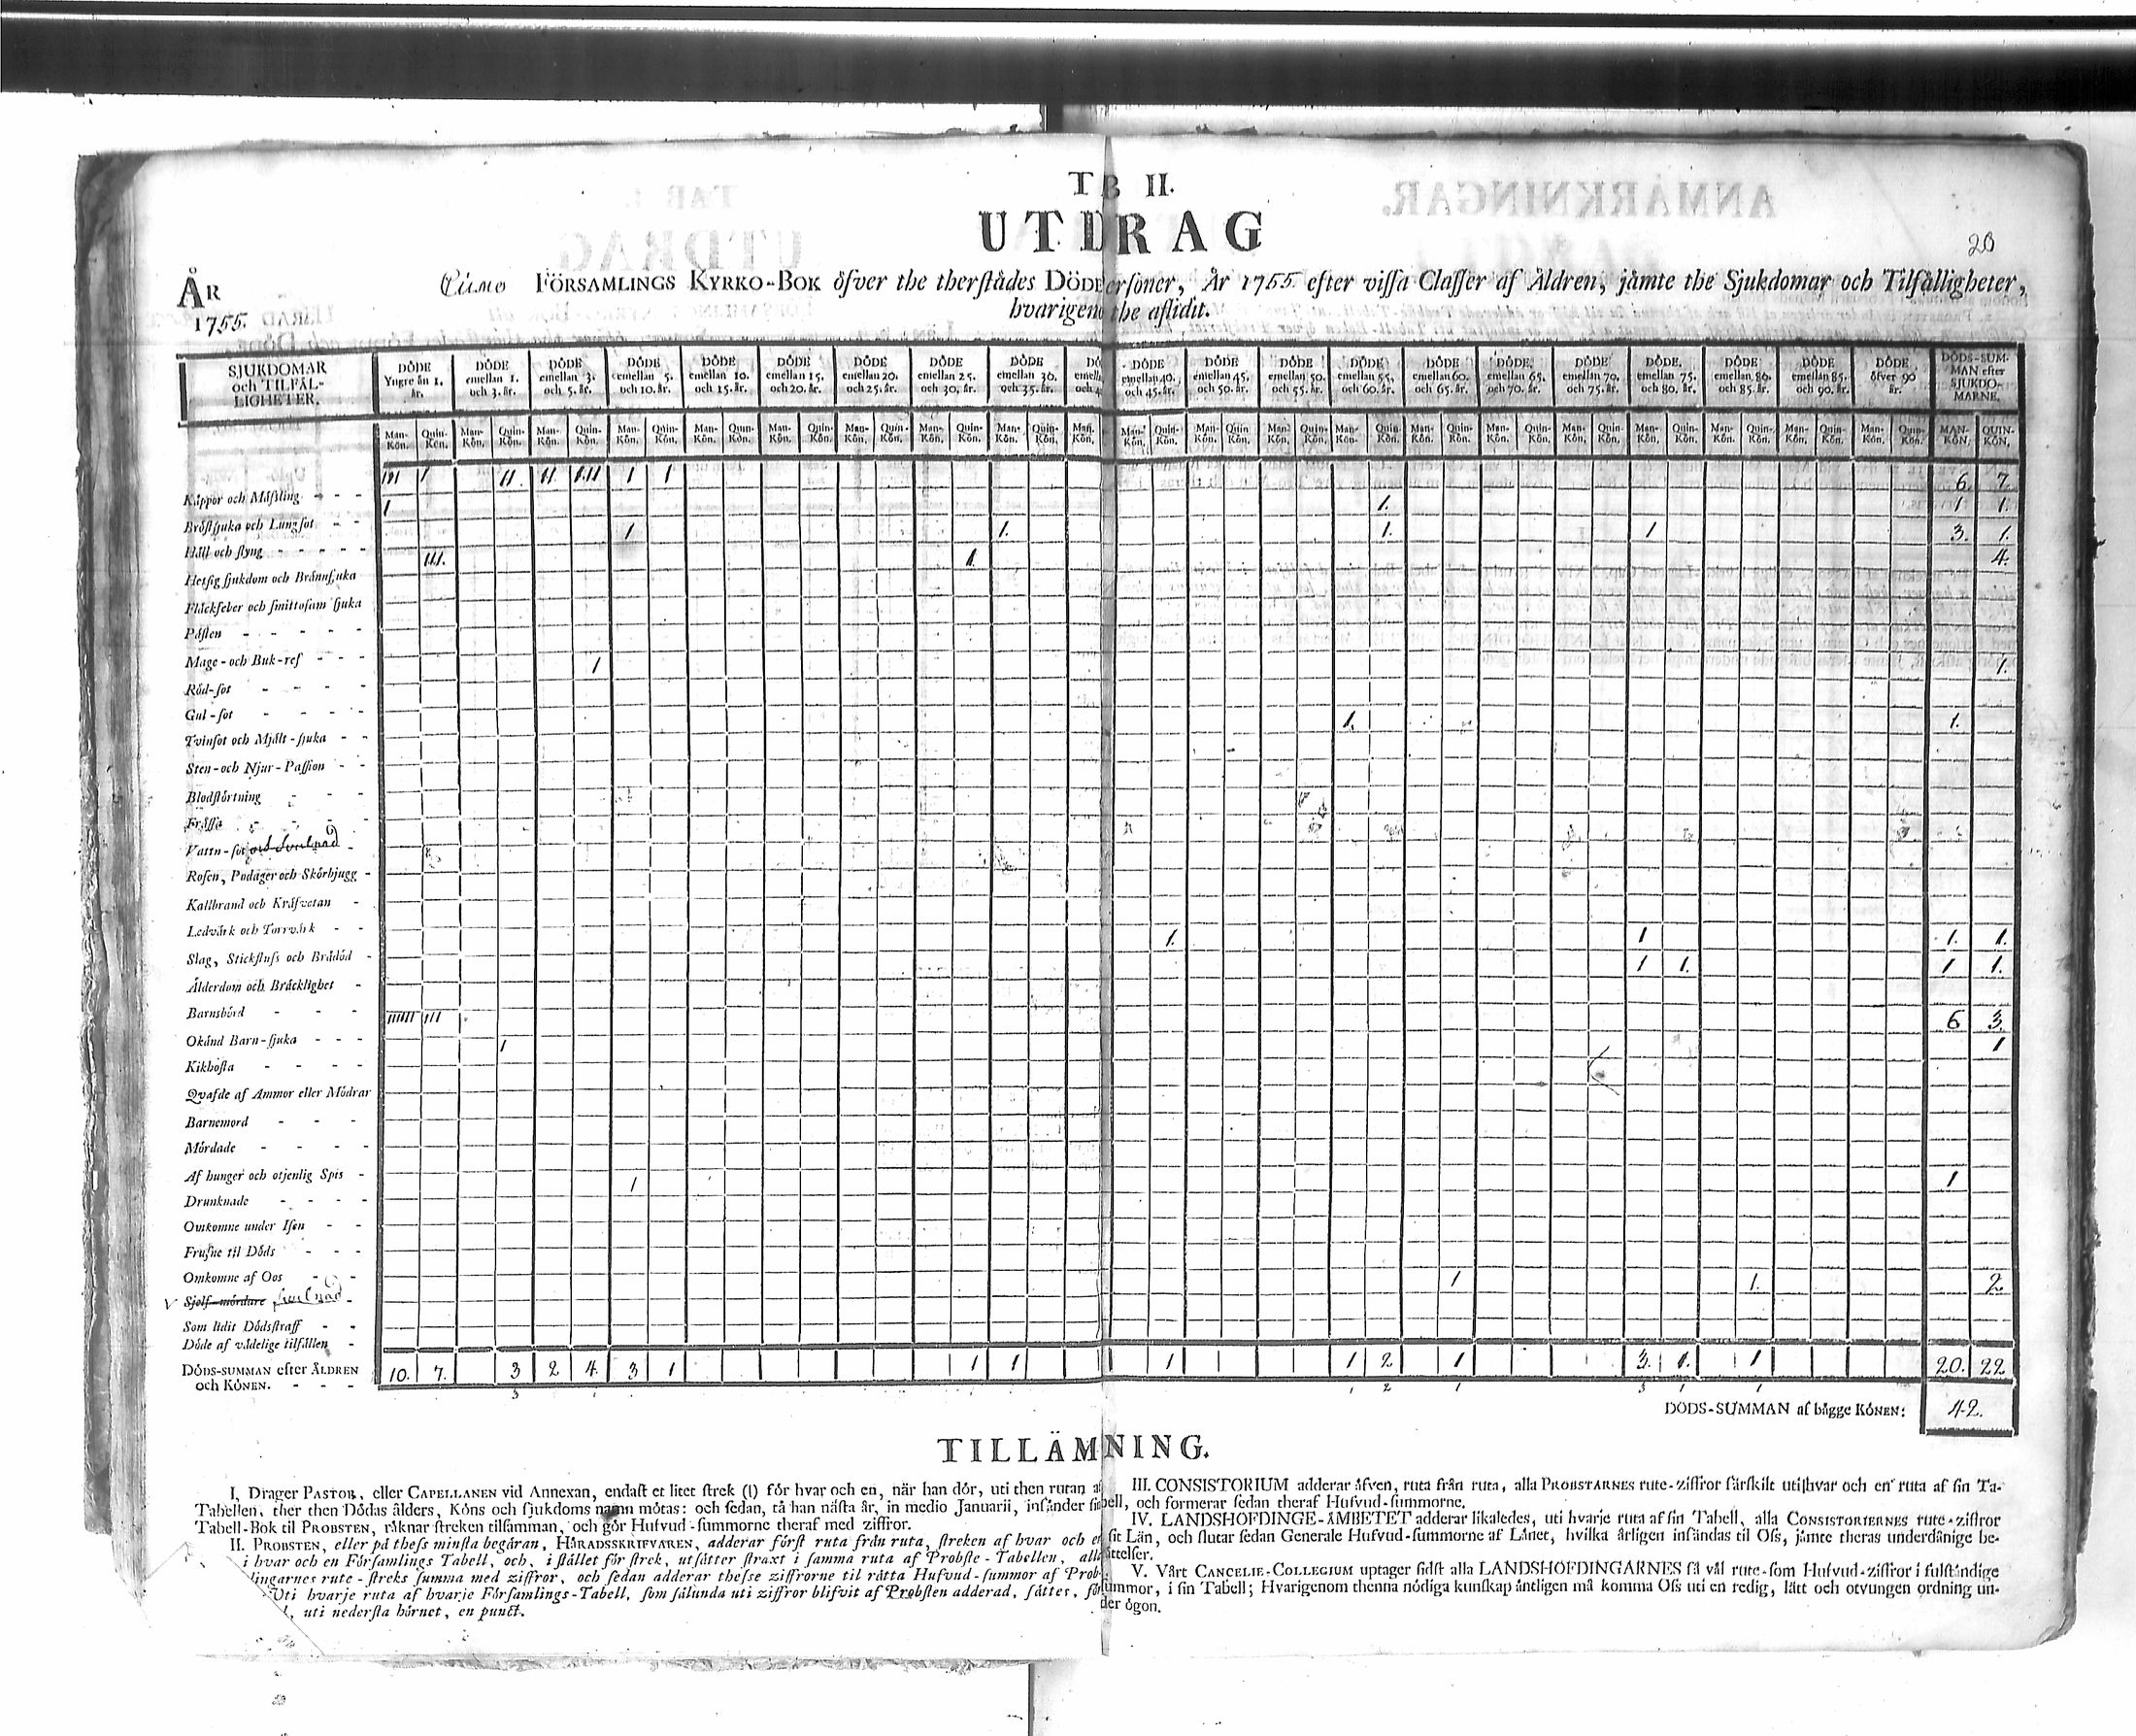 T B II.
UTDRAG
20
ÅR
1755.
FÖRSAMLINGS KYRKO-BOK öfver the therstädes DÖDE ersoner, År 1755 efter vissa Classer af Åldren, jämte the Sjukdomar och Tilfälligheter,
hvarigen the aflidit.
SJUKDOMAR och TILFÄL-LIGHETER. DÖDE Yngre än 1. år. DÖDE emellan 1. och 3. år. DÖDE emellan 3. och 5. år. DÖDE emellan 5. och 10. år. DÖDE emellan 10. och 15. år. DÖDE emellan 15. och 20. år. DÖDE emellan 20. och 25. år. DÖDE emellan 25. och 30. år. DÖDE emellan 30. och 35. år. DÖDE emellan 40. och 45. år. DÖDE emellan 45. och 50. år. DÖDE emellan 50. och 55. år. DÖDE emellan 55. och 60. år. DÖDE emellan 60. och 65. år. DÖDE emellan 65. och 70. år. DÖDE emellan 70. och 75. år. DÖDE emellan 75. och 80. år. DÖDE emellan 80. och 85. år. DÖDE emellan 85. och 90. år. DÖDE öfver 90 år. DÖDS-SUM-MAN efter SJUKDO-MARNE.
Man-Kön. Quin-Kön. Man-Kön. Quin-Kön. Man-Kön. Quin-Kön. Man-Kön. Quin-Kön. Man-Kön. Quin-Kön. Man-Kön. Quin-Kön. Man-Kön. Quin-Kön. Man-Kön. Quin-Kön. Man-Kön. Quin-Kön. Man-Kön. Man-Kön. Quin-Kön. Man-Kön. Quin-Kön. Man-Kön. Quin-Kön. Man-Kön. Quin-Kön. Man-Kön. Quin-Kön. Man-Kön. Quin-Kön. Man-Kön. Quin-Kön. Man-Kön. Quin-Kön. Man-Kön. Quin-Kön. Man-Kön. Quin-Kön. Man-Kön. Quin-Kön. MAN-KÖN. QUIN-KÖN.
Kåppor och Mäsling - - - III I II II IIII I I 6 7
Bröstsjuka och Lungsot - - I 1. 1 1.
Håll och styng - - - - - 1 1. 1. 1 3. 1.
Hetsig sjukdom och Brännsjuka III. 1. 4.
Fläckfeber och smittosam sjuka
Pästen - - - - -
Mage- och Buk-ref - - - 1 1.
Röd-sot - - - -
Gul-sot - - - - 1. 1.
Tvinsot och Mjält-sjuka - -
Sten- och Njur-Passion - -
Blodstörtning - - -
Frässa - - - -
Vattn-sot
Rosen, Podager och Skörbjugg -
Kallbrand och Kräfvetan -
Ledvärk och Torrvärk - - 1. 1 1. 1.
Slag, Stickfluss och Brådöd - 1 1. 1 1.
Ålderdom och Bräcklighet -
Barnsbörd - - - - IIIIII III 6 3.
Okänd Barn-sjuka - - - 1 1
Kikhosta - - - -
Qvafde af Ammor eller Mödrar
Barnemord - - -
Mördade - - - -
Af hunger och otjenlig Spis - 1 1
Drunknade - - - -
Omkomne under Isen - -
Frusne til Döds - - -
Omkomne af Oos - - - 1 1. 2
Sjelf-mördare
Som lidit Dödsstraff - -
Döde af vådelige tilfällen -
DÖDS-SUMMAN efter ÅLDREN och KÖNEN. - - - 10. 7. 3 2 4. 3 1 1 1 1 1 2 1 3. 1. 1 20. 22
DÖDS-SUMMAN af bägge KÖNEN: 42.
TILLÄMNING.
I. Drager PASTOR, eller CAPELLANEN vid Annexan, endast et litet strek (l) för hvar och en, när han dör, uti then rutan af
Tabellen, ther then Dödas ålders, Köns och sjukdoms namn mötas: och sedan, tå han nästa år, in medio Januarii, insänder sin
Tabell-Bok til PROBSTEN, räknar streken tilsamman, och gör Hufvud-summorne theraf med ziffror.
II. PROBSTEN, eller på thess minsta begäran, HÄRADSSKRIFVAREN, adderar först ruta från ruta, streken af hvar och en
i hvar och en Församlings Tabell, och, i stället för strek, utsätter straxt i samma ruta af Probste-Tabellen, alla
lingarnes rute-streks summa med ziffror, och sedan adderar thesse ziffrorne til rätta Hufvud-summor af Prob-
Uti hvarje ruta af hvarje Församlings-Tabell, som sålunda uti ziffror blifvit af Probsten adderad, sättes, för
uti nedersta hörnet, en punct.
III. CONSISTORIUM adderar äfven, ruta från ruta, alla PROBSTARNES rute-ziffror särskilt uti hvar och en ruta af sin Ta-
bell, och formerar sedan theraf Hufvud-summorne.
IV. LANDSHÖFDINGE-ÄMBETET adderar likaledes, uti hvarje ruta af sin Tabell, alla CONSISTORIERNES rute-ziffror
sit Län, och slutar sedan Generale Hufvud-summorne af Länet, hvilka årligen insändas til Oss, jämte theras underdånige be-
rättelser.
V. Vårt CANCELIE-COLLEGIUM uptager sidst alla LANDSHÖFDINGARNES så väl rute- som Hufvud-ziffror i fulständige
summor, i sin Tabell; Hvarigenom thenna nödiga kunskap äntligen må komma Oss uti en redig, lätt och otvungen ordning un-
der ögon.